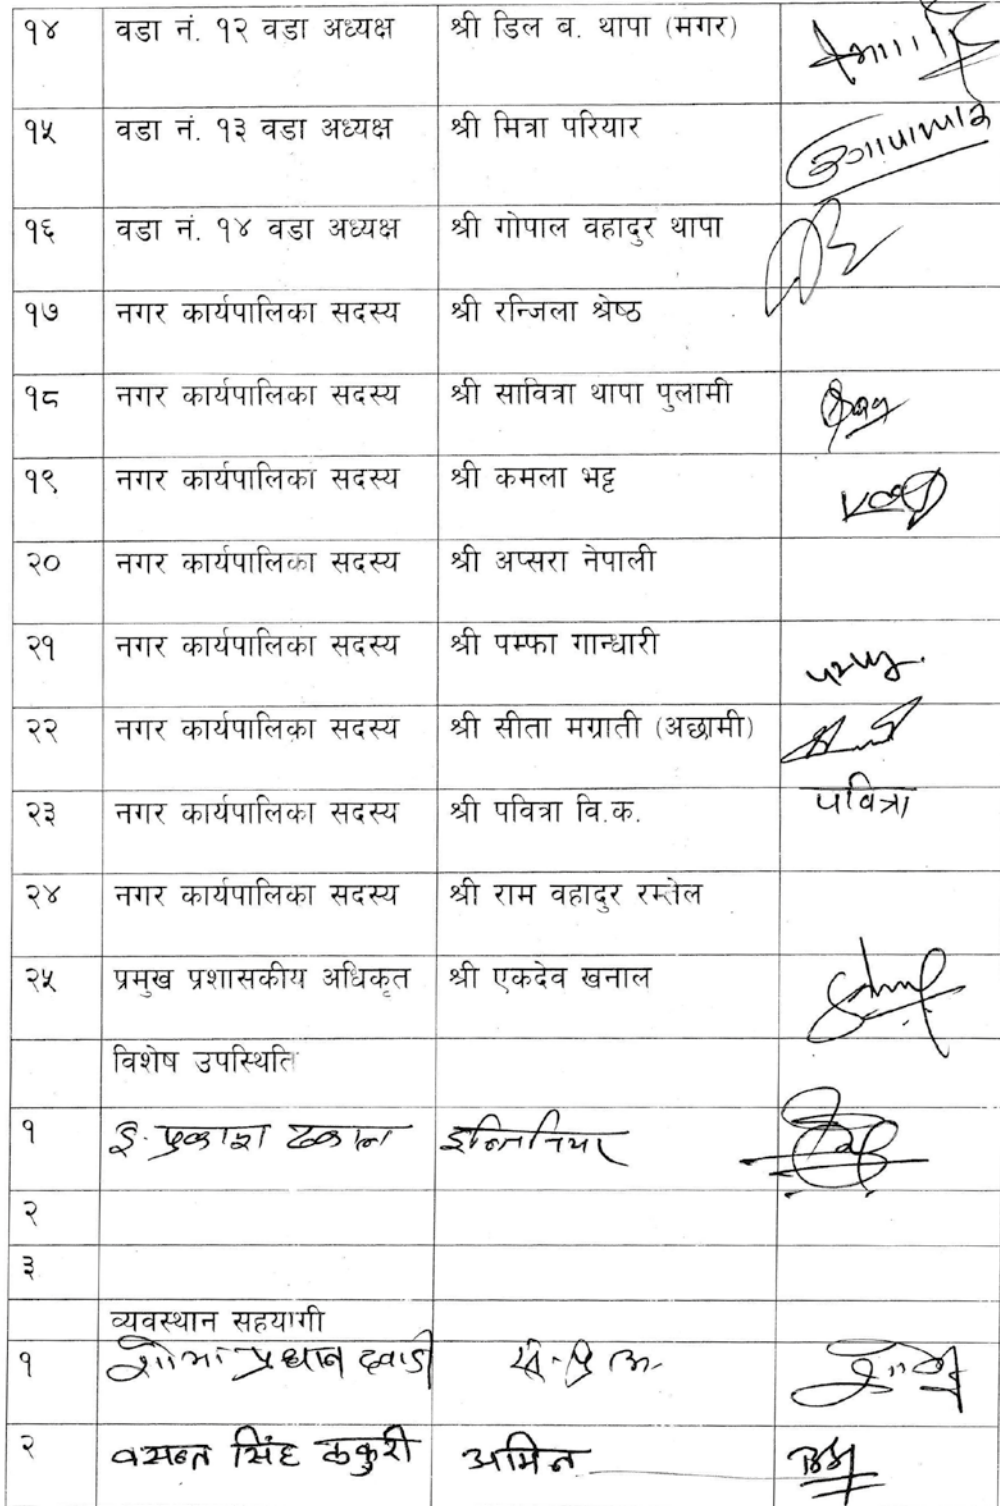 १४ वडा नं. १२ वडा अध्यक्ष श्री डिल व. थापा (मगर)
१५ वडा नं. १३ वडा अध्यक्ष श्री मित्रा परियार
१६ वडा नं. १४ वडा अध्यक्ष श्री गोपाल वहादुर थापा
१७ नगर कार्यपालिका सदस्य श्री रन्जिला श्रेष्ठ
१८ नगर कार्यपालिका सदस्य श्री सावित्रा थापा पुलामी
१९ नगर कार्यपालिका सदस्य श्री कमला भट्ट
२० नगर कार्यपालिका सदस्य श्री अप्सरा नेपाली
२१ नगर कार्यपालिका सदस्य श्री पम्फा गान्धारी
२२ नगर कार्यपालिका सदस्य श्री सीता मग्राती (अछामी)
२३ नगर कार्यपालिका सदस्य श्री पवित्रा वि.क. पवित्रा
२४ नगर कार्यपालिका सदस्य श्री राम वहादुर रम्तेल
२५ प्रमुख प्रशासकीय अधिकृत श्री एकदेव खनाल
विशेष उपस्थिति
१ इ. प्रकाश ढकाल
२
३
व्यवस्थान सहयागी
१ प्रधान
२ वसन्त सिंह ठकुरी अमिन